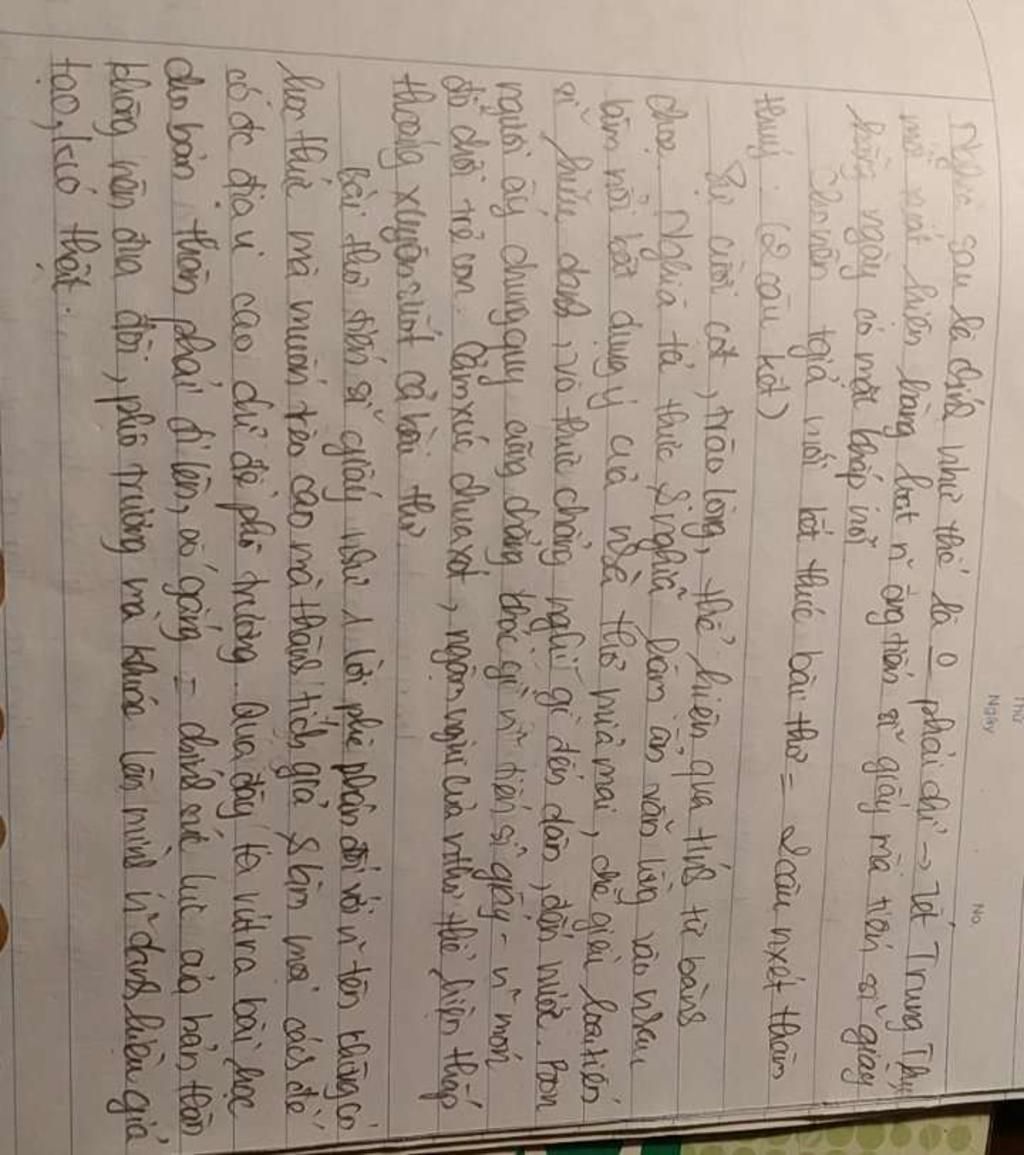 Thứ
Ngày
No
Nghĩa sau là chính như thế là o phải chỉ → Tết Trung Thu
mới xuất hiện hàng loạt n~ ông tiến sĩ giấy mà tiến sĩ giấy
hàng ngày có mặt khắp nơi
Cho nên tgiả mới kết thúc bài thơ = 2 câu nxét thâm
thuý. (2 câu kết)
Sự cười cợt, trào lộng, thể hiện qua tính từ bảnh
choẹ. Nghĩa tả thực & nghĩa hàm ẩn văn lồng vào nhau
làm nổi bật dụng ý của nhà thơ mỉa mai, chế giễu loại tiến
sĩ hữu danh, vô thực chẳng nghĩ gì đến dân, đến nước. Bọn
người ấy chung quy cũng chẳng khác gì n~ tiến sĩ giấy - n~ món
đồ chơi trẻ con. Cảm xúc chua xót, ngậm ngùi của nthơ thể hiện thấp
thoáng xuyên suốt cả bài thơ.
Bài thơ tiến sĩ giấy như 1 lời phê phán đối với n~ tên không có
học thức mà muốn trèo cao mà thành tích giả & làm mọi cách để
có đc địa vị cao chỉ để phô trương. Qua đây ta rút ra bài học
cho bản thân phải đi lên, cố gắng = chính sức lực của bản thân
không nên đua đòi, phô trương mà khoác lên mình n~ danh hiệu giả
tạo, k có thật.